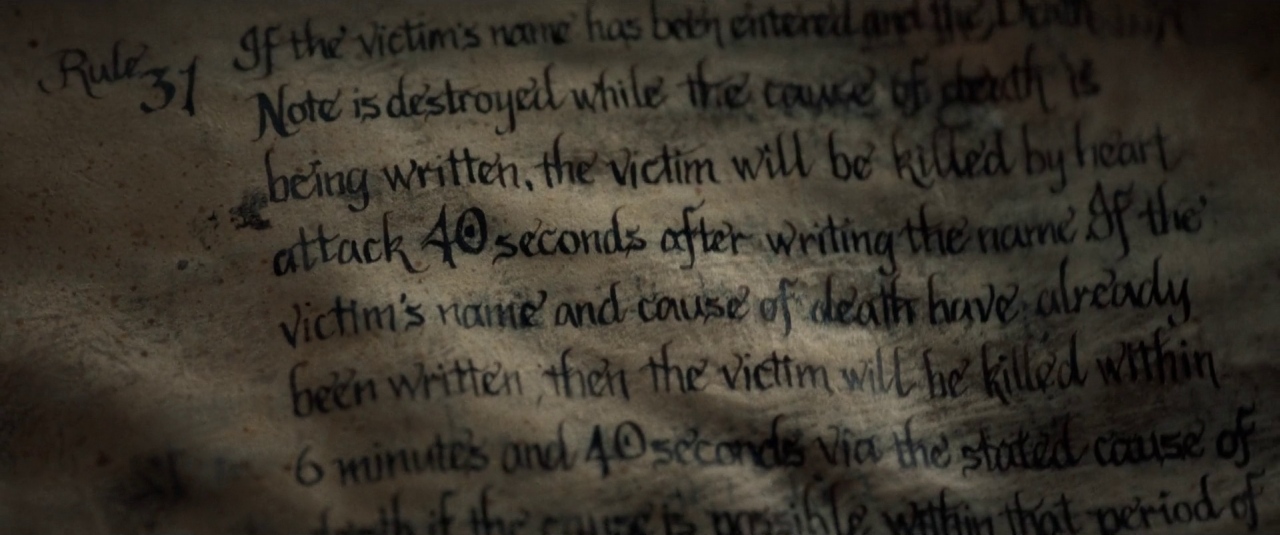 Rule 31 If the victim's name has been entered and the Death
Note is destroyed while the cause of death is
being written, the victim will be killed by heart
attack 40 seconds after writing the name If the
victim's name and cause of death have already
been written, then the victim will be killed within
6 minutes and 40 seconds via the stated cause of
death if the cause is possible within that period of